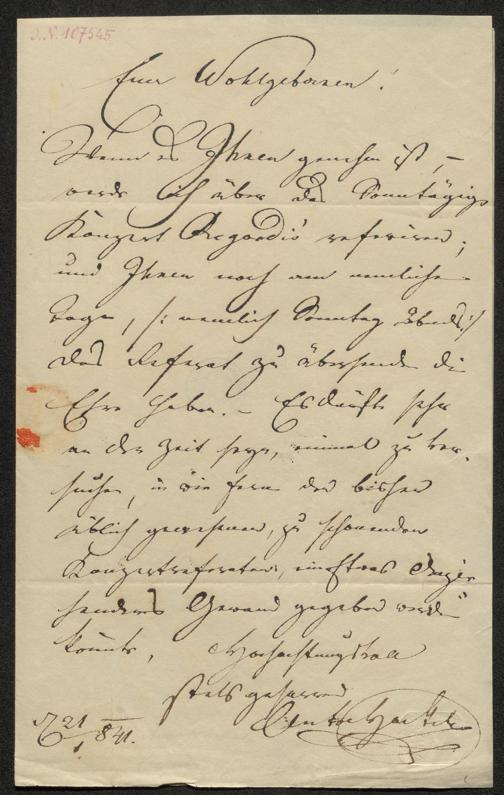 J.N. 107545
Euer Wohlgeboren!
Wenn es Ihnen genehm ist, –
werde ich über das Sonntägige
Konzert referiren;
und Ihnen noch am nemlichen
Tage, /: nemlich Sonntag Abends :/
das Referat zu übersenden die
Ehre haben. – Es dürfte sehr
an der Zeit seyn, einmal zu ver-
suchen, in wie fern den bisher
üblich gewesenen, zu schonenden
Konzertreferaten, ein etwas
Gewand gegeben werden
könnte, Hochachtungsvoll
stets geharrend
21/1 841.